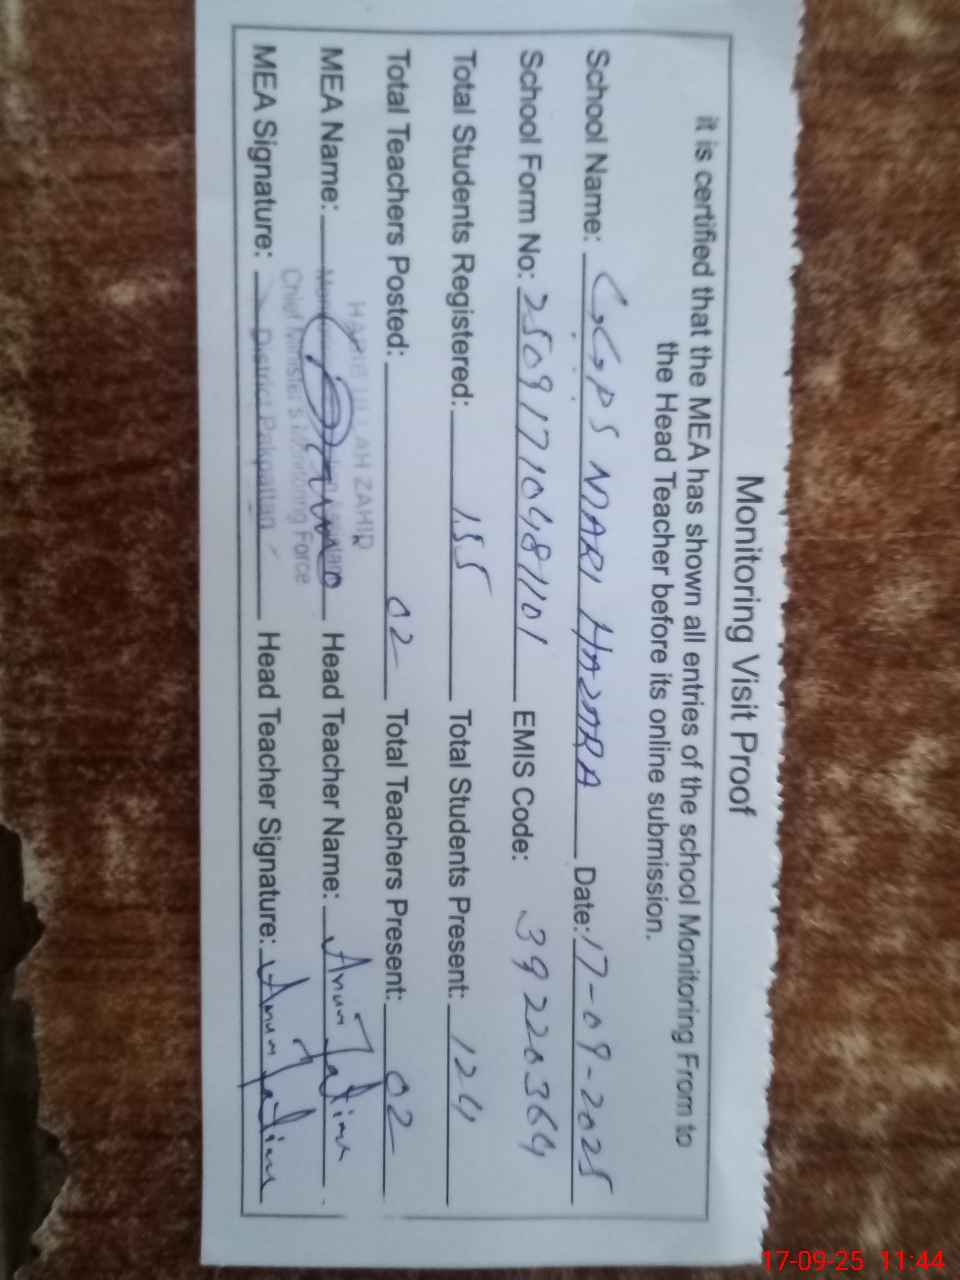 Monitoring Visit Proof
it is certified that the MEA has shown all entries of the school Monitoring From to
the Head Teacher before its online submission.
School Name: GGPS MARI HAZARA Date: 17-09-2025
School Form No: 25091710481101 EMIS Code: 39220364
Total Students Registered: 155 Total Students Present: 124
Total Teachers Posted: 02 Total Teachers Present: 02
HABIB ULLAH ZAHID
MEA Name: Head Teacher Name: Anum Fatima
Chief Minister's Monitoring Force
MEA Signature: District Pakpattan Head Teacher Signature: Anum Fatima
17-09-25 11:44